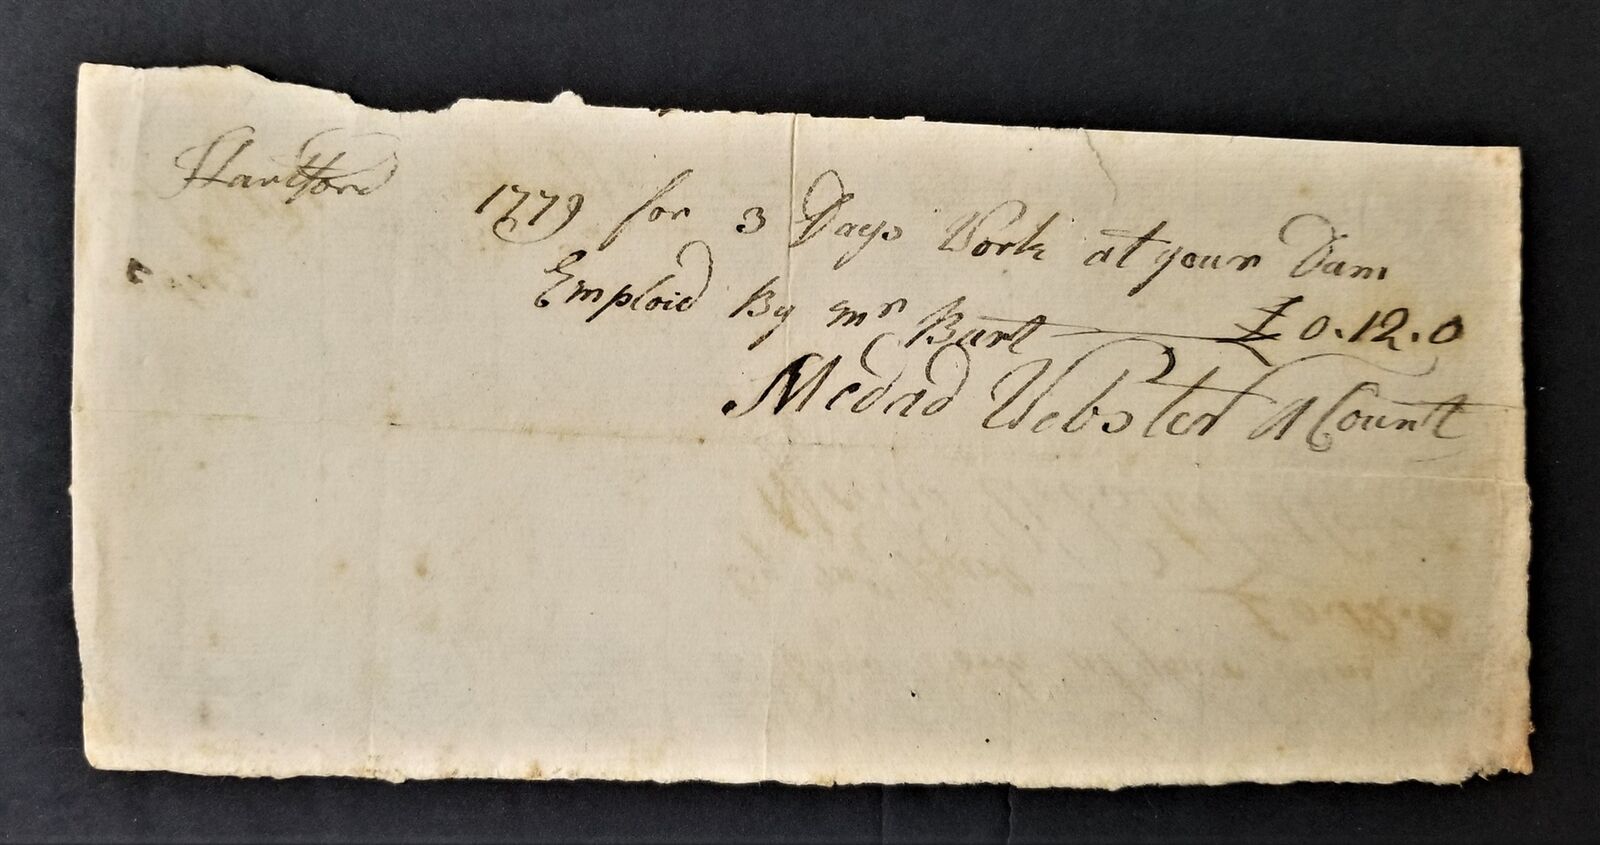 Hartford 1779 for 3 Days Work at your Dam
Emploid By mr Burt £0.12.0
Medad Webster A Count